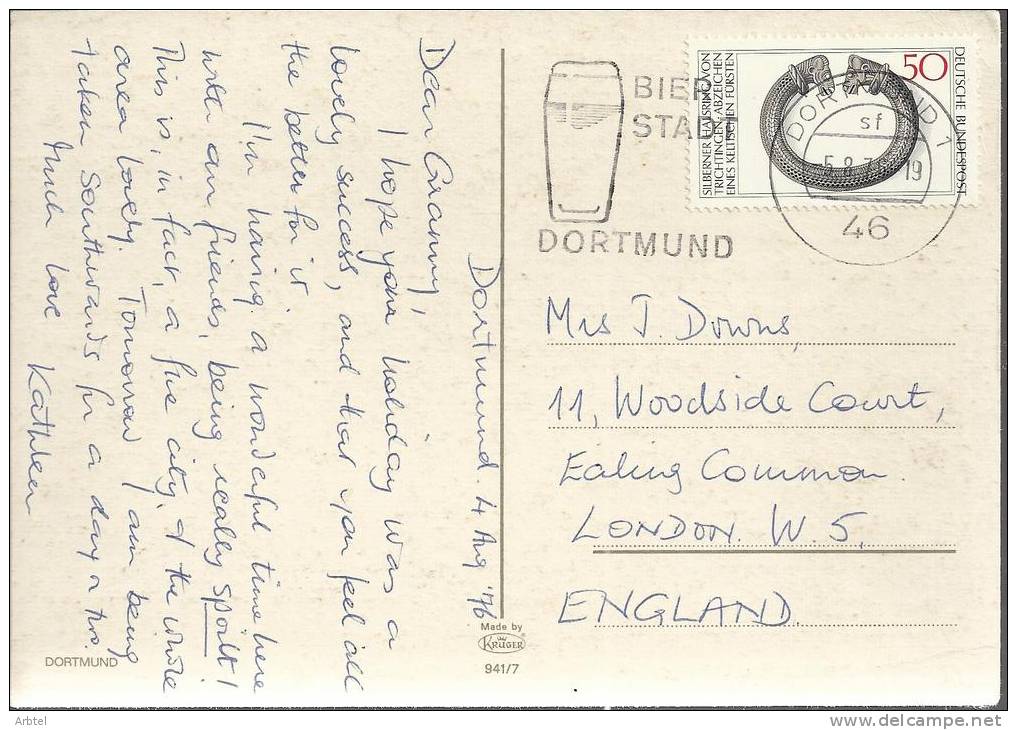 Dortmund. 4 Aug '76
Dear Granny,
I hope your holiday was a
lovely success, and that you feel all
the better for it.
I'm having a wonderful time here
with our friends, being really spoilt!
This is, in fact, a fine city, & the whole
area lovely. Tomorrow I am being
taken Southwards for a day or two.
Much love
Kathleen
DORTMUND
Made by
KRÜGER
941/7
BIER
STADT
DORTMUND
50
DEUTSCHE BUNDESPOST
SILBERNER HALSRING VON
TRICHTINGEN, ABZEICHEN
EINES KELTISCHEN FÜRSTEN
DORTMUND 1
sf
19
46
Mrs J. Downs,
11, Woodside Court,
Ealing Common.
LONDON. W. 5.
ENGLAND.
Arbtel
delcampe.net